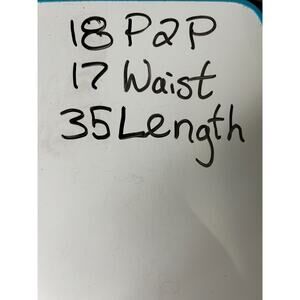 18 P2P
17 Waist
35 Length